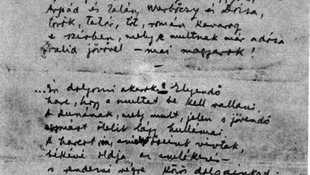 Árpád és Zalán, Werbőczy és Dózsa,
török, tatár, tót, román kavarog
e szívben, mely e multnak már adósa
szelid jövővel – mai magyarok!
...Én dolgozni akarok. Elegendő
harc, hogy a multat be kell vallani.
A Dunának, mely mult, jelen s jövendő
egymást ölelik lágy hullámai.
A harcot, amelyet őseink vívtak,
békévé oldja az emlékezés
s rendezni végre közös dolgainkat,